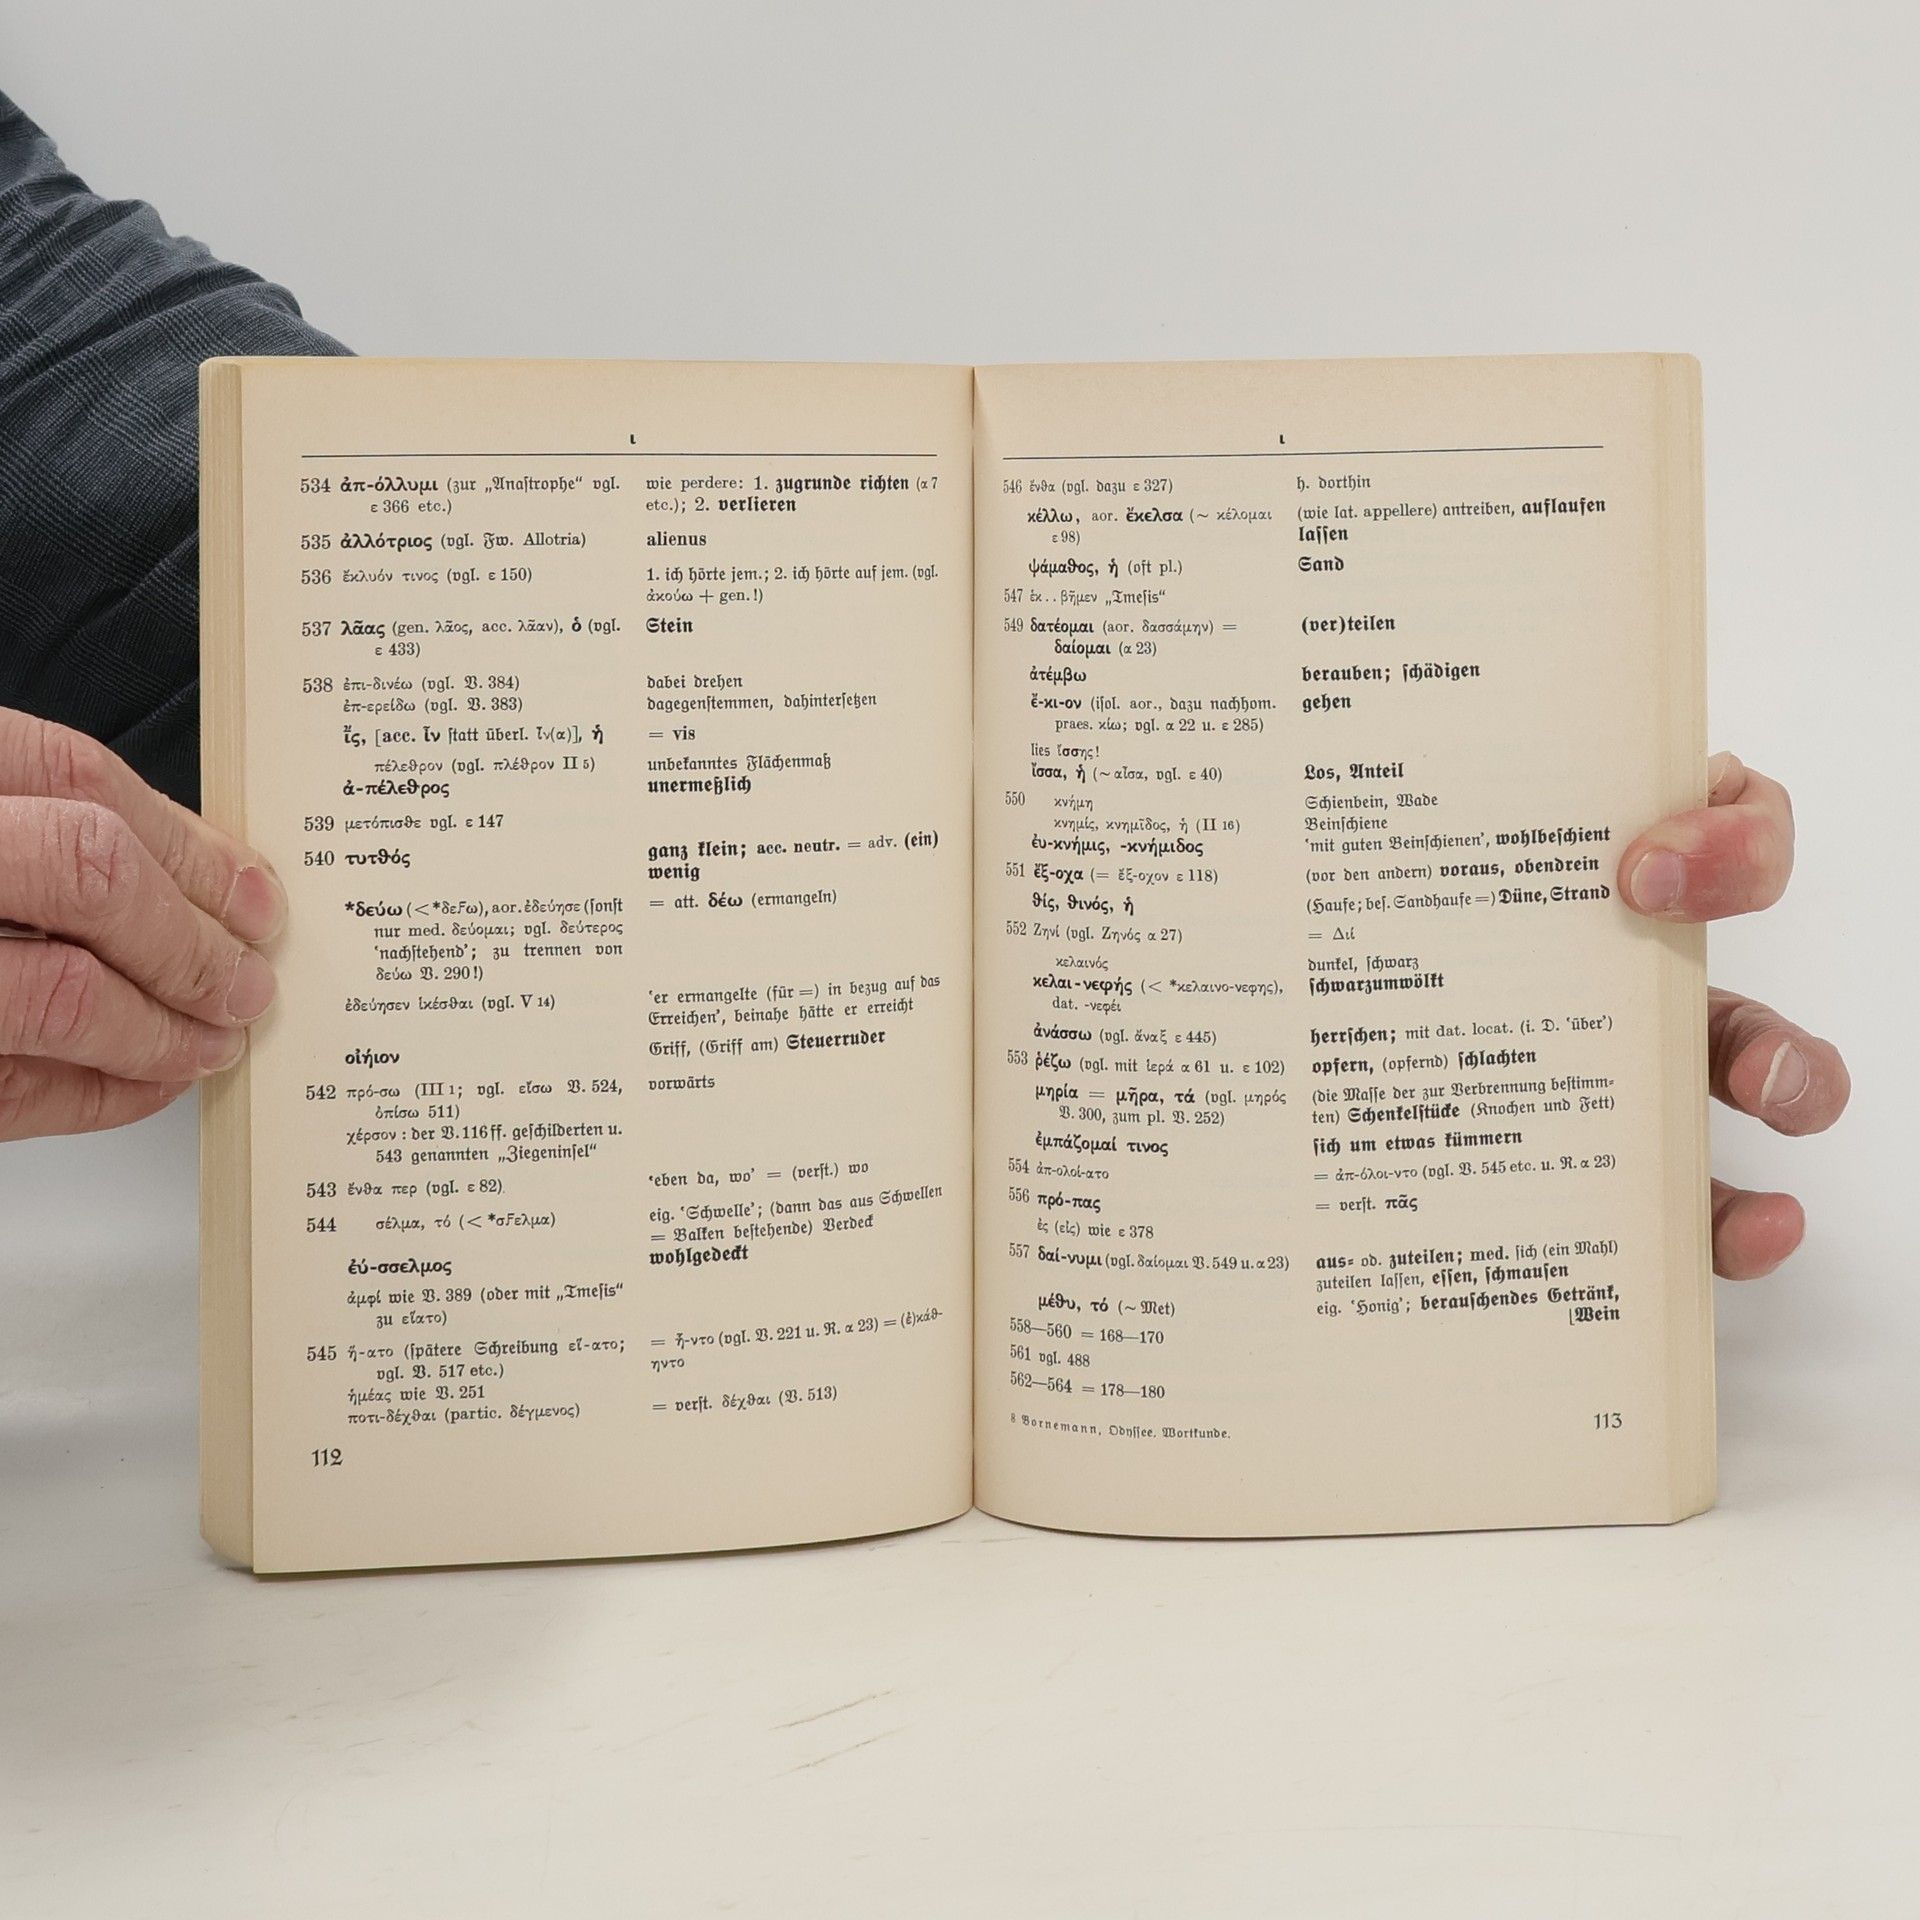 ι
534 ἀπ-όλλυμι (zur „Anastrophe“ vgl.
ε 366 etc.)
wie perdere: 1. zugrunde richten (α 7
etc.); 2. verlieren
535 ἀλλότριος (vgl. Fw. Allotria)
alienus
536 ἔκλυόν τινος (vgl. ε 150)
1. ich hörte jem.; 2. ich hörte auf jem. (vgl.
ἀκούω + gen.!)
537 λᾶας (gen. λᾶος, acc. λᾶαν), ὁ (vgl.
ε 433)
Stein
538 ἐπι-δινέω (vgl. V. 384)
dabei drehen
ἐπ-ερείδω (vgl. V. 383)
dagegenstemmen, dahintersetzen
ἴ̄ς, [acc. ἶν statt überl. ἶν(α)], ἡ
= vis
πέλεθρον (vgl. πλέθρον II 5)
unbekanntes Flächenmaß
ἀ-πέλεθρος
unermeßlich
539 μετόπισθε vgl. ε 147
540 τυτθός
ganz klein; acc. neutr. = adv. (ein)
wenig
*δεύω (< *δεϝω), aor. ἐδεύησε (sonst
nur med. δεύομαι; vgl. δεύτερος
‘nachstehend’; zu trennen von
δεύω V. 290!)
= att. δέω (ermangeln)
ἐδεύησεν ἱκέσθαι (vgl. V 14)
‘er ermangelte (für =) in bezug auf das
Erreichen’, beinahe hätte er erreicht
οἰήιον
Griff, (Griff am) Steuerruder
542 πρό-σω (III 1; vgl. εἴσω V. 524,
ὀπίσω 511)
vorwärts
χέρσον : der V. 116 ff. geschilderten u.
543 genannten „Ziegeninsel“
543 ἔνθα περ (vgl. ε 82)
‘eben da, wo’ = (verst.) wo
544 σέλμα, τό (< *σϝελμα)
eig. ‘Schwelle’; (dann das aus Schwellen
= Balken bestehende) Verdeck
ἐύ-σσελμος
wohlgedeckt
ἀμφί wie V. 389 (oder mit „Tmesis“
zu εἵατο)
545 ἥ-ατο (spätere Schreibung εἵ-ατο;
vgl. V. 517 etc.)
= ἧ-ντο (vgl. V. 221 u. R. α 23) = (ἐ)κάθ-
ηντο
ἡμέας wie V. 251
ποτι-δέχθαι (partic. δέγμενος)
= verst. δέχθαι (V. 513)
112
ι
546 ἔνθα (vgl. dazu ε 327)
h. dorthin
κέλλω, aor. ἔκελσα (~ κέλομαι
ε 98)
(wie lat. appellere) antreiben, auflaufen
lassen
ψάμαθος, ἡ (oft pl.)
Sand
547 ἐκ . . βῆμεν „Tmesis“
549 δατέομαι (aor. δασσάμην) =
δαίομαι (α 23)
(ver)teilen
ἀτέμβω
berauben; schädigen
ἔ-κι-ον (isol. aor., dazu nachhom.
praes. κίω; vgl. α 22 u. ε 285)
gehen
lies ἴσσης!
ἴσσα, ἡ (~ αἶσα, vgl. ε 40)
Los, Anteil
550 κνήμη
Schienbein, Wade
κνημίς, κνημῖδος, ἡ (II 16)
Beinschiene
ἐυ-κνήμις, -κνήμιδος
‘mit guten Beinschienen’, wohlbeschient
551 ἔξ-οχα (= ἔξ-οχον ε 118)
(vor den andern) voraus, obendrein
θίς, θινός, ἡ
(Haufe; bes. Sandhaufe =) Düne, Strand
552 Ζηνί (vgl. Ζηνός α 27)
= Διί
κελαινός
dunkel, schwarz
κελαι-νεφής (< *κελαινο-νεφης),
dat. -νεφέι
schwarzumwölkt
ἀνάσσω (vgl. ἄναξ ε 445)
herrschen; mit dat. locat. (i. D. ‘über’)
553 ῥέζω (vgl. mit ἱερά α 61 u. ε 102)
opfern, (opfernd) schlachten
μηρία = μῆρα, τά (vgl. μηρός
V. 300, zum pl. V. 252)
(die Masse der zur Verbrennung bestimm-
ten) Schenkelstücke (Knochen und Fett)
ἐμπάζομαί τινος
sich um etwas kümmern
554 ἀπ-ολοί-ατο
= ἀπ-όλοι-ντο (vgl. V. 545 etc. u. R. α 23)
556 πρό-πας
= verst. πᾶς
ἐς (εἰς) wie ε 378
557 δαί-νυμι (vgl. δαίομαι V. 549 u. α 23)
aus- od. zuteilen; med. sich (ein Mahl)
zuteilen lassen, essen, schmausen
μέθυ, τό (~ Met)
eig. ‘Honig’; berauschendes Getränk,
[Wein
558—560 = 168—170
561 vgl. 488
562—564 = 178—180
8 Bornemann, Odyssee, Wortkunde.
113